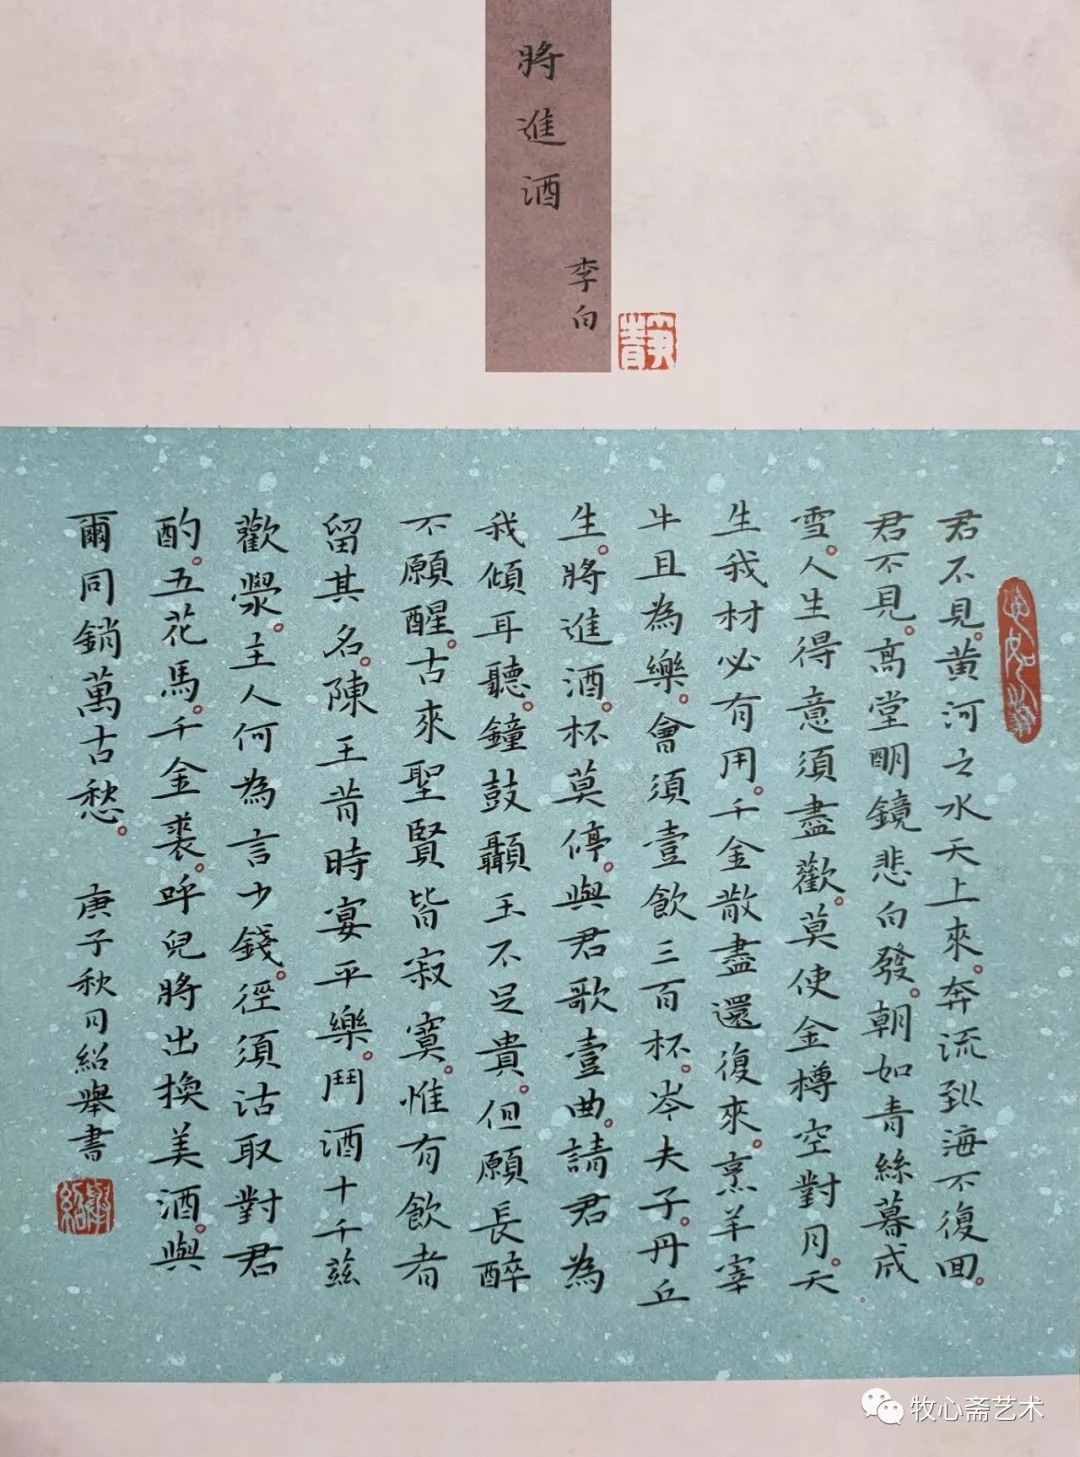 將進酒
李白
靜
君不見。黃河之水天上來。奔流到海不復回。
君不見。高堂明鏡悲白發。朝如青絲暮成
雪。人生得意須盡歡。莫使金樽空對月。天
生我材必有用。千金散盡還復來。烹羊宰
牛且為樂。會須壹飲三百杯。岑夫子。丹丘
生。將進酒。杯莫停。與君歌壹曲。請君為
我傾耳聽。鐘鼓玉不足貴。但願長醉
不願醒。古來聖賢皆寂寞。惟有飲者
留其名。陳王昔時宴平樂。鬥酒十千茲
歡謔。主人何為言少錢。徑須沽取對君
酌。五花馬。千金裘。呼兒將出換美酒。與
爾同銷萬古愁。庚子秋月紹舉書
紹舉
牧心斋艺术